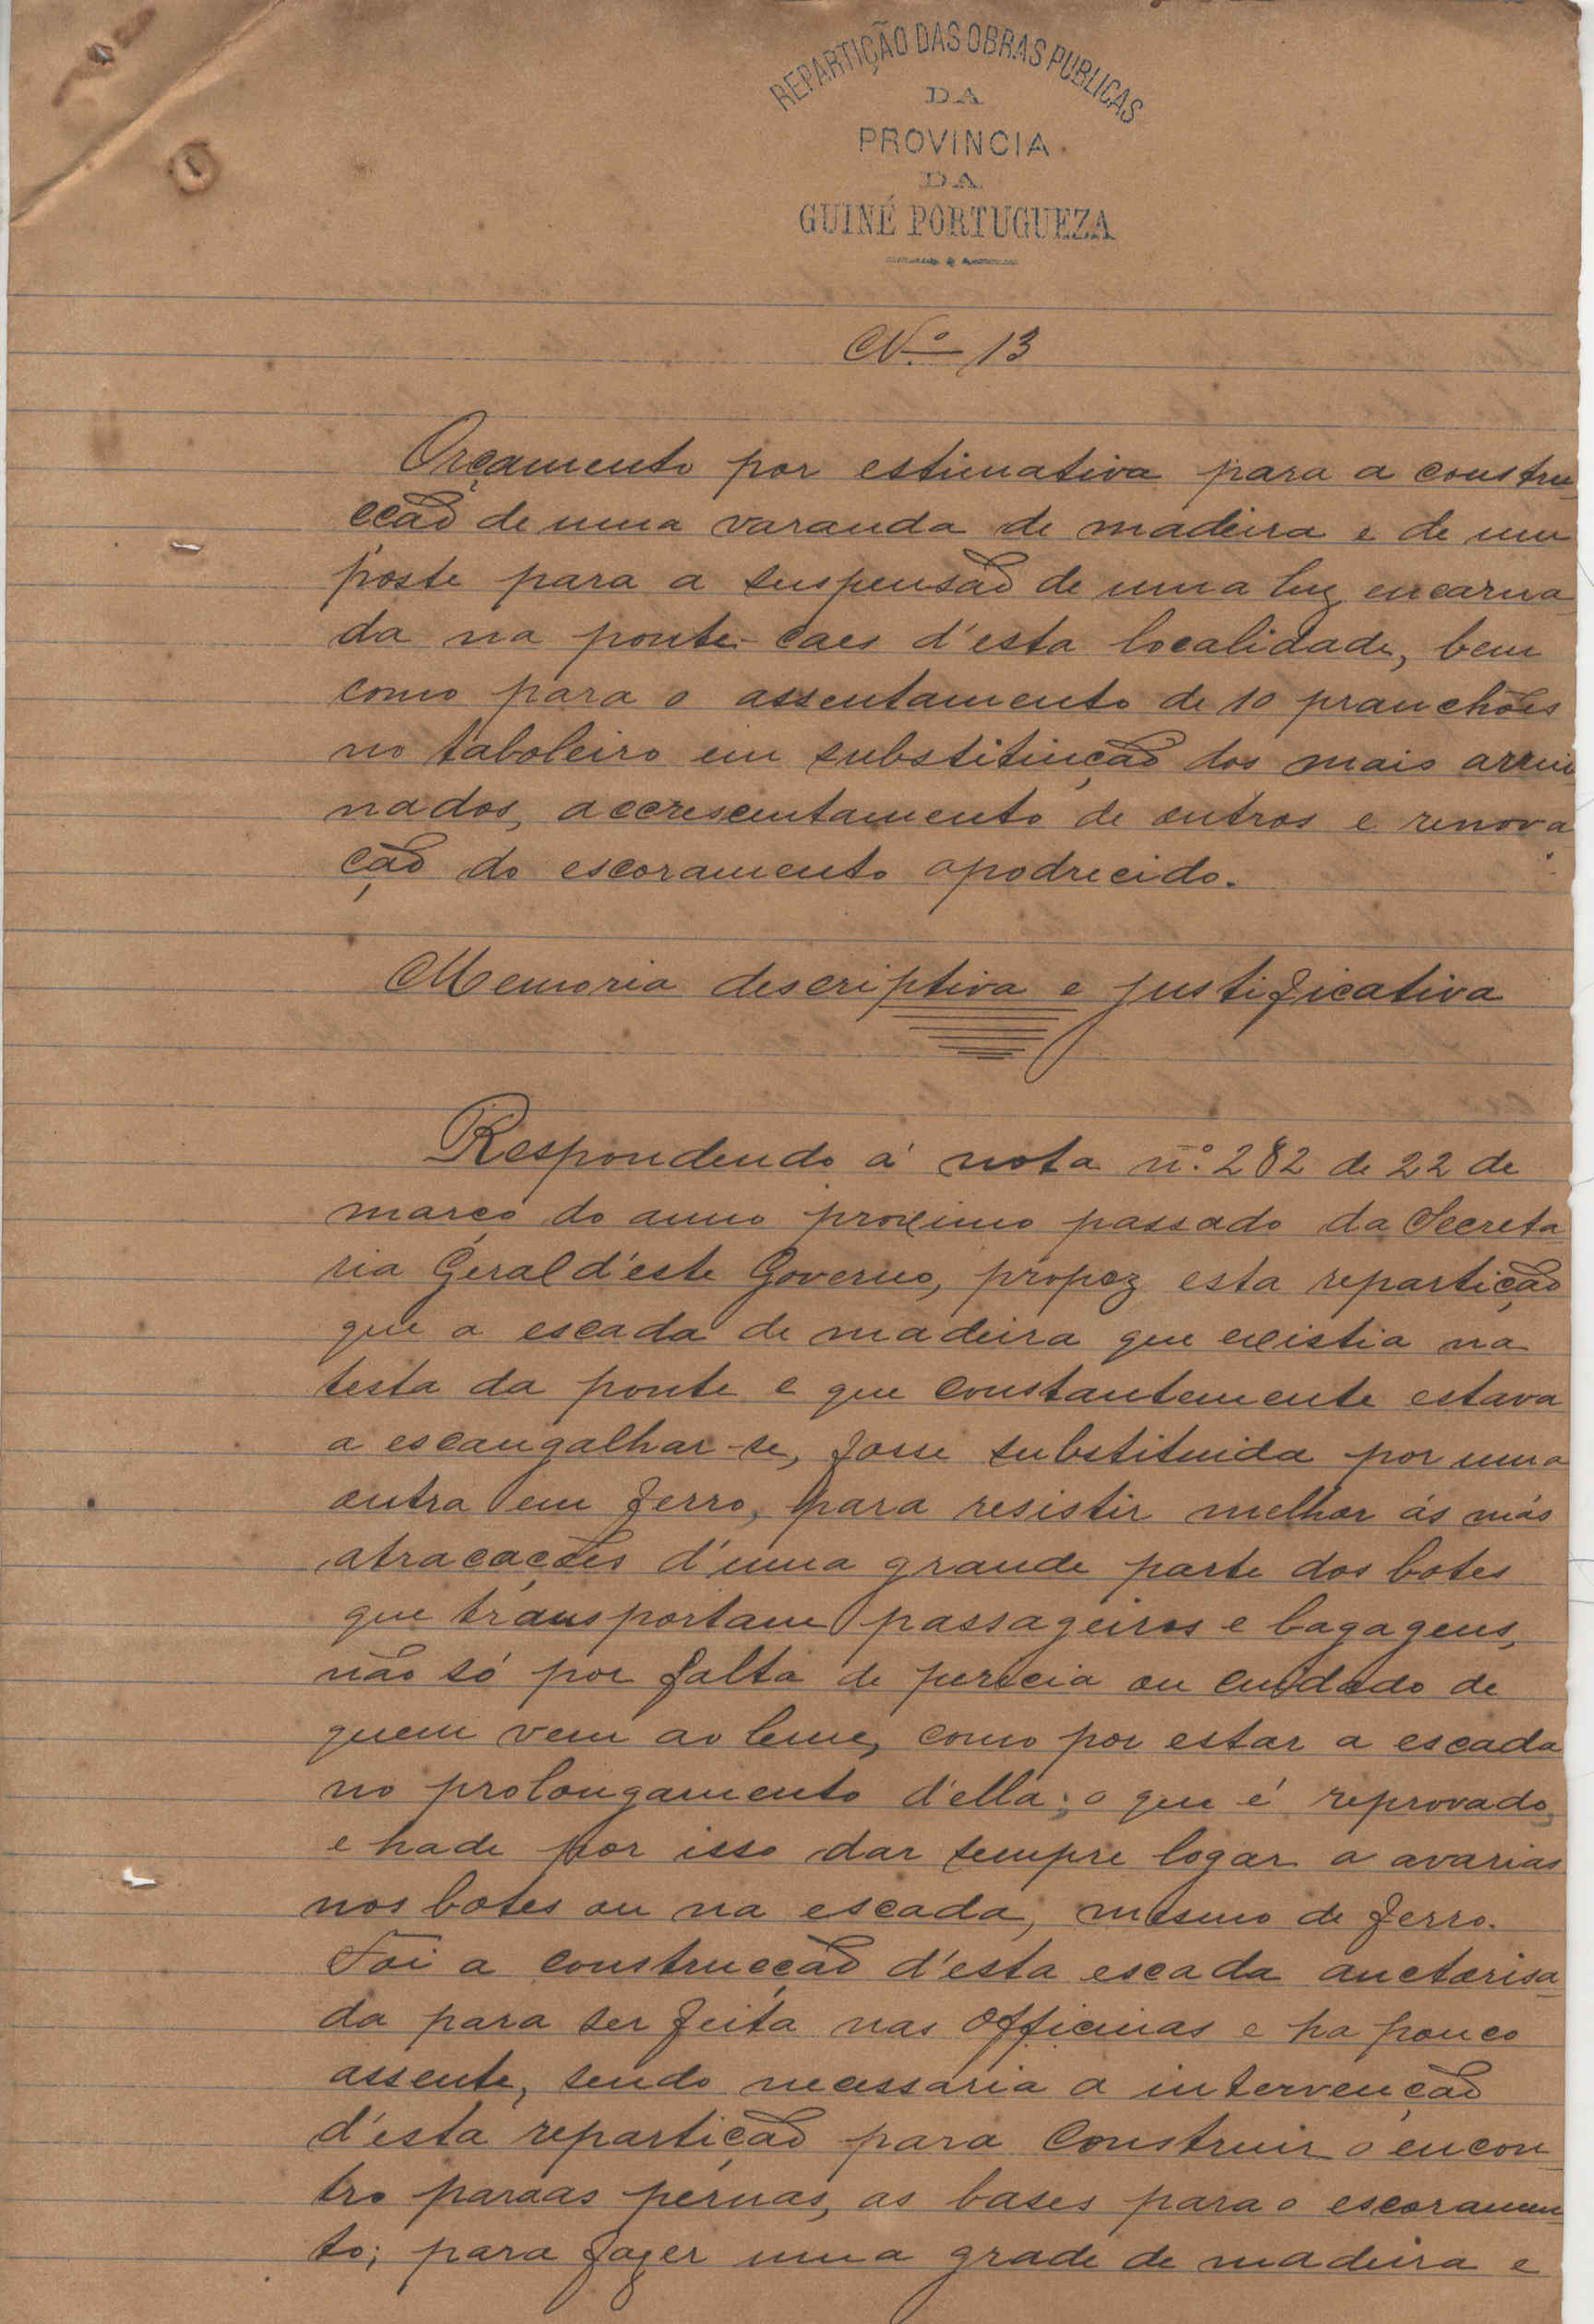 REPARTIÇÃO DAS OBRAS PUBLICAS
DA
PROVINCIA
DA
GUINÉ PORTUGUEZA
Nº 13
Orçamento por estimativa para a constru
cção de uma varanda de madeira e de um
poste para a suspensão de uma luz encarna
da na ponte-caes d'esta localidade, bem
como para o assentamento de 10 pranchões
no taboleiro em substituição dos mais arrui
nados, accrescentamento de outros e renova
ção do escoramento apodrecido.
Memoria descriptiva e justificativa
Respondendo á nota nº 282 de 22 de
março do anno proximo passado da Secreta
ria Geral d'este Governo, propoz esta repartição
que a escada de madeira que existia na
testa da ponte e que constantemente estava
a escangalhar-se, fosse substituida por uma
outra em ferro, para resistir melhor ás más
atracações d'uma grande parte dos botes
que transportam passageiros e bagagens,
não só por falta de pericia ou cuidado de
quem vem ao leme, como por estar a escada
no prolongamento d'ella; o que é reprovado,
e hade por isso dar sempre logar a avarias
nos botes ou na escada, mesmo de ferro.
Foi a construcção d'esta escada auctorisa
da para ser feita nas officinas e ha pouco
assente, sendo necessaria a intervenção
d'esta repartição para construir o encon
tro para as pernas, as bases para o escoramen
to; para fazer uma grade de madeira e